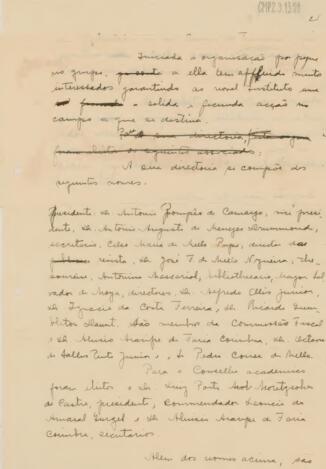 CMP2.3.13.91
2
Iniciada a organisação por peque
nos grupos, a ella tem affluido muito
interessados garantindo ao novel instituto uma
solida e fecunda acção no
campo a que se destina.
sua directoria,
foram eleitos os seguintes associados:
A sua directoria se compõe dos
seguintes nomes.
Presidente, dr. Antonio Pompêo de Camargo, vice presi
dente, dr. Antonio Augusto de Menezes Drummond,
secretario, Celso Maria de Mello Pupo, director da
revista, dr. José T. de Mello Nogueira, the
soureiro, Antonino Massarioli, bibliothecario, major Sal
vador de Moya, directores, dr. Alfredo Ellis Junior,
dr. Ignacio da Costa Ferreira, dr. Ricardo Gum
bleton Daunt. São membros da Commissão Fiscal
dr. Aluisio Araripe de Faria Coimbra, dr. Octavio
de Salles Pinto Junior, e Pedro Correa de Mello.
Para o Conselho academico
foram eleitos o dr. Luiz Porto
de Castro, presidente, Commendador Leoncio do
Amaral Gurgel e dr. Aluisio Araripe de Faria
Coimbra, secretarios.
Alem dos nomes acima, sao